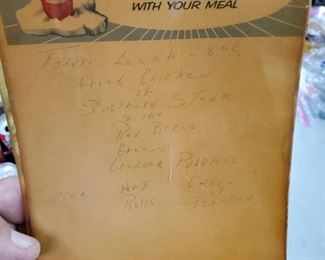 WITH YOUR MEAL
Todays Lunch - 85¢
fried Chicken
or
Smothered Steak
with
Red Beans
Greens
Creamed Potatoes
Hot Coffee
Rolls or Iced Tea